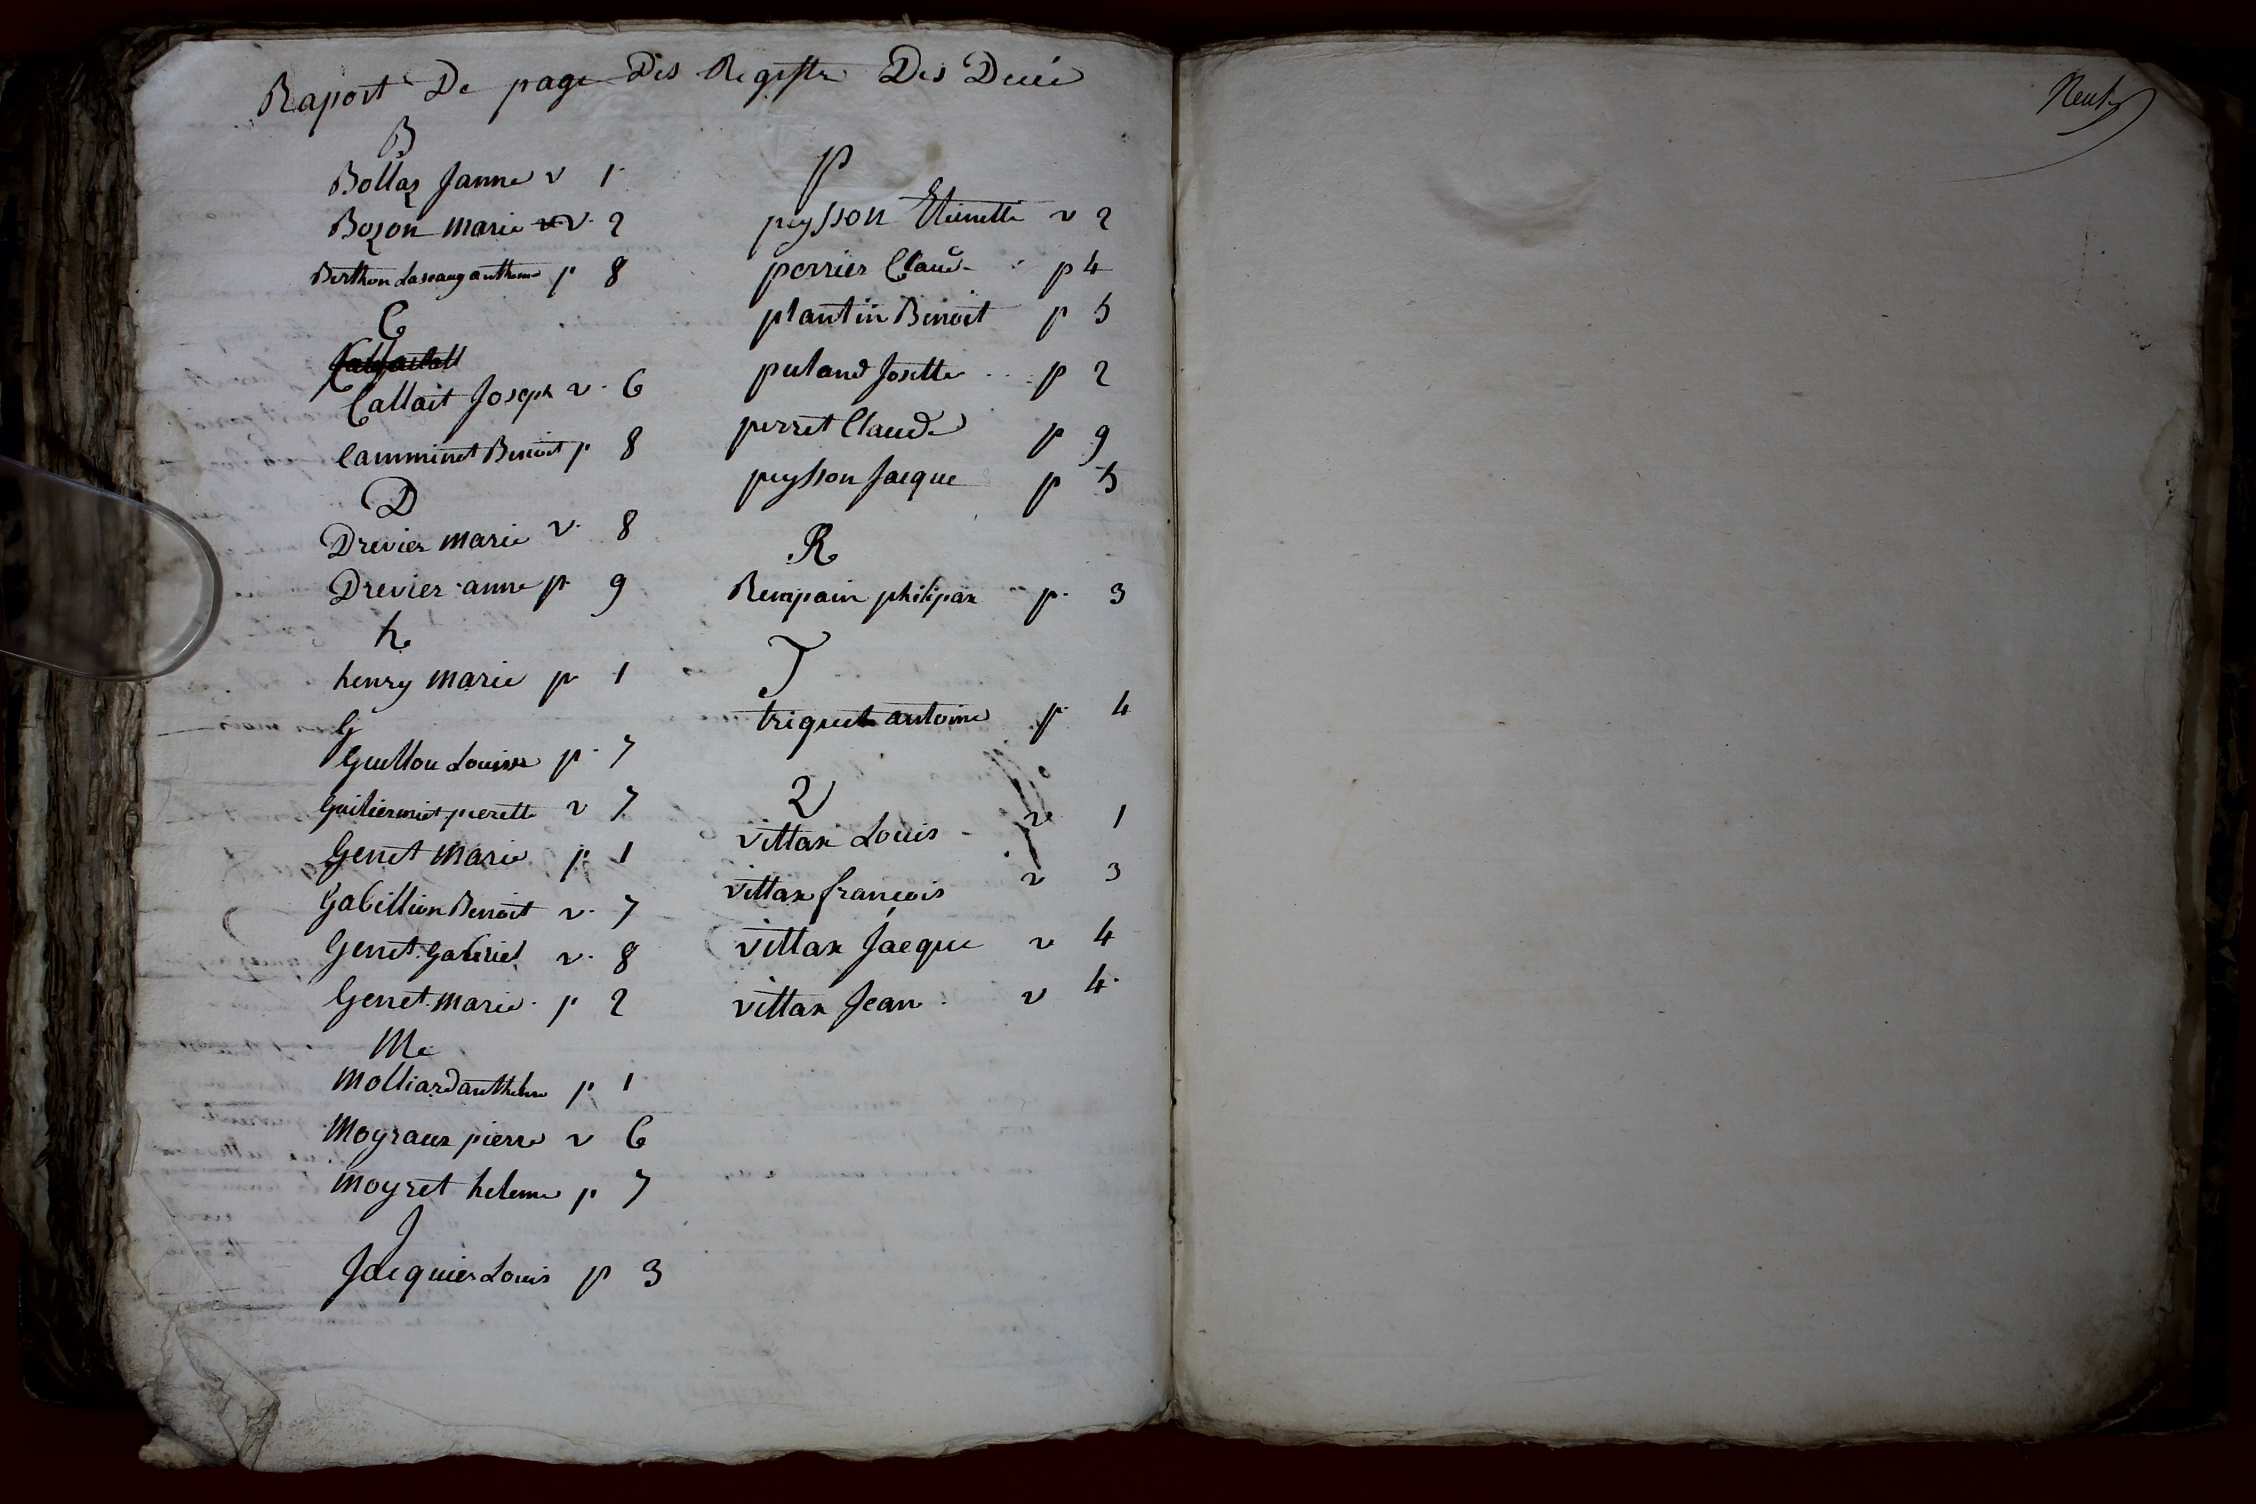 Raport De page Des Registre Des Decé
B
Bollaz Janne v 1
Bozon marie v. 2
Berthon anthelme p 8
C
Callait Joseph v. 6
Camminet Benoit p 8
D
Drevier marie v. 8
Drevier anne p 9
h
henry marie p 1
G
Guillou Louise p. 7
Guiliermiet pierette v 7
Genet marie p 1
Gabillion Benoit v. 7
Genet Gabriel v. 8
Genet marie p 2
M
Molliard anthelme p 1
Moyraux pierre v 6
Moyret helene p 7
J
Jacquier Louis p 3
P
peysson Etienette v 2
perrier Claude p 4
plantin Benoit p 5
puland Josette p 2
perret Claude p 9
peysson Jacque p 5
R
Rempain p. 3
T
triquet antoine p. 4
V
vittax Louis v 1
vittax françois v 3
vittax Jacque v 4
vittax Jean v 4